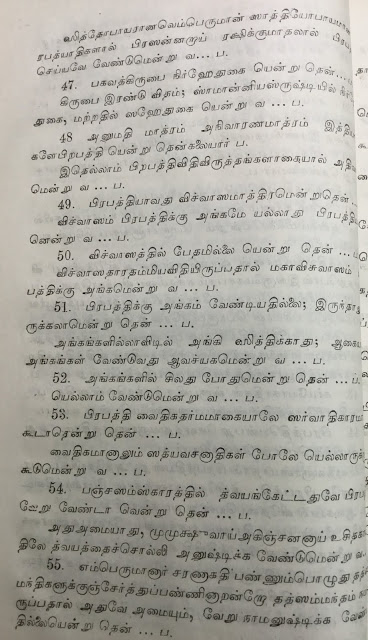 ஸித்தோபாயரானவெம்பெருமான் ஸாத்தியோபாயமான
ரபத்யாதிகளால் பிரஸன்னராய் ரக்ஷிக்குமாதலால் பிர
செய்யவே வேண்டுமென்று வ... ப.
47. பகவத்கிருபை நிர்ஹேதுகை யென்று தென்...
கிருபை இரண்டு விதம்; ஸாமான்யஸ்ருஷ்டியில் நிர்
துகை, மற்றதில் ஸஹேதுகை யென்று வ ... ப.
48 அனுமதி மாத்ரம் அநிவாரணமாத்ரம் இத்தி
களேபிறபத்தி யென்று தென்கலையார் ப.
இதெல்லாம் பிறபத்திவிதிவிருத்தங்களாகையால் அதி
மென்று வ ... ப.
49. பிரபத்தியாவது விச்வாஸமாத்திரமென்றுதென்...
விச்வாஸம் பிரபத்திக்கு அங்கமே யல்லாது பிரபத்தி
னென்று வ ... ப.
50. விச்வாஸத்தில் பேதமில்லை யென்று தென் ... ப
விச்வாஸதாரதம்மியவிதியிருப்பதால் மகாவிசுவாஸம்
பத்திக்கு அங்கமென்று வ ... ப.
51. பிரபத்திக்கு அங்கம் வேண்டியதில்லை; இருந்தா
ருக்கலாமென்று தென் ... ப.
அங்கங்களில்லாவிடில் அங்கி ஸித்திக்காது; ஆகை
அங்கங்கள் வேண்டுவது ஆவச்யகமென்று வ ... ப.
52. அங்கங்களில் சிலது போதுமென்று தென் ... ப.
யெல்லாம் வேண்டுமென்று வ ... ப.
53. பிரபத்தி வைதிகதர்மமாகையாலே ஸர்வாதிகாரம்
கூடாரென்று தென் ... ப.
வைதிகமானாலும் ஸத்யவசனாதிகள் போலே யெல்லாருக்
கூடுமென்று வ ... ப.
54. பஞ்சஸம்ஸ்காரத்தில் த்வயங்கேட்டதுவே பிரப
வேறு வேண்டா வென்று தென் ... ப.
அதுஅமையாது, முமுக்ஷுவாய்அகிஞ்சனனாய் உசிதகா
திலே த்வயத்தைச்சொல்லி அனுஷ்டிக்க வேண்டுமென்று வ.
55. எம்பெருமானார் சரணாகதி பண்ணும்பொழுது தந்
மந்திகளுக்குஞ்சேர்த்துப்பண்ணினாறன்றோ தத்ஸம்மந்தம் ந
ருப்பதால் அதுவே அமையும், வேறு நாமனுஷ்டிக்க வே
தில்லையென்று தென் ... ப.